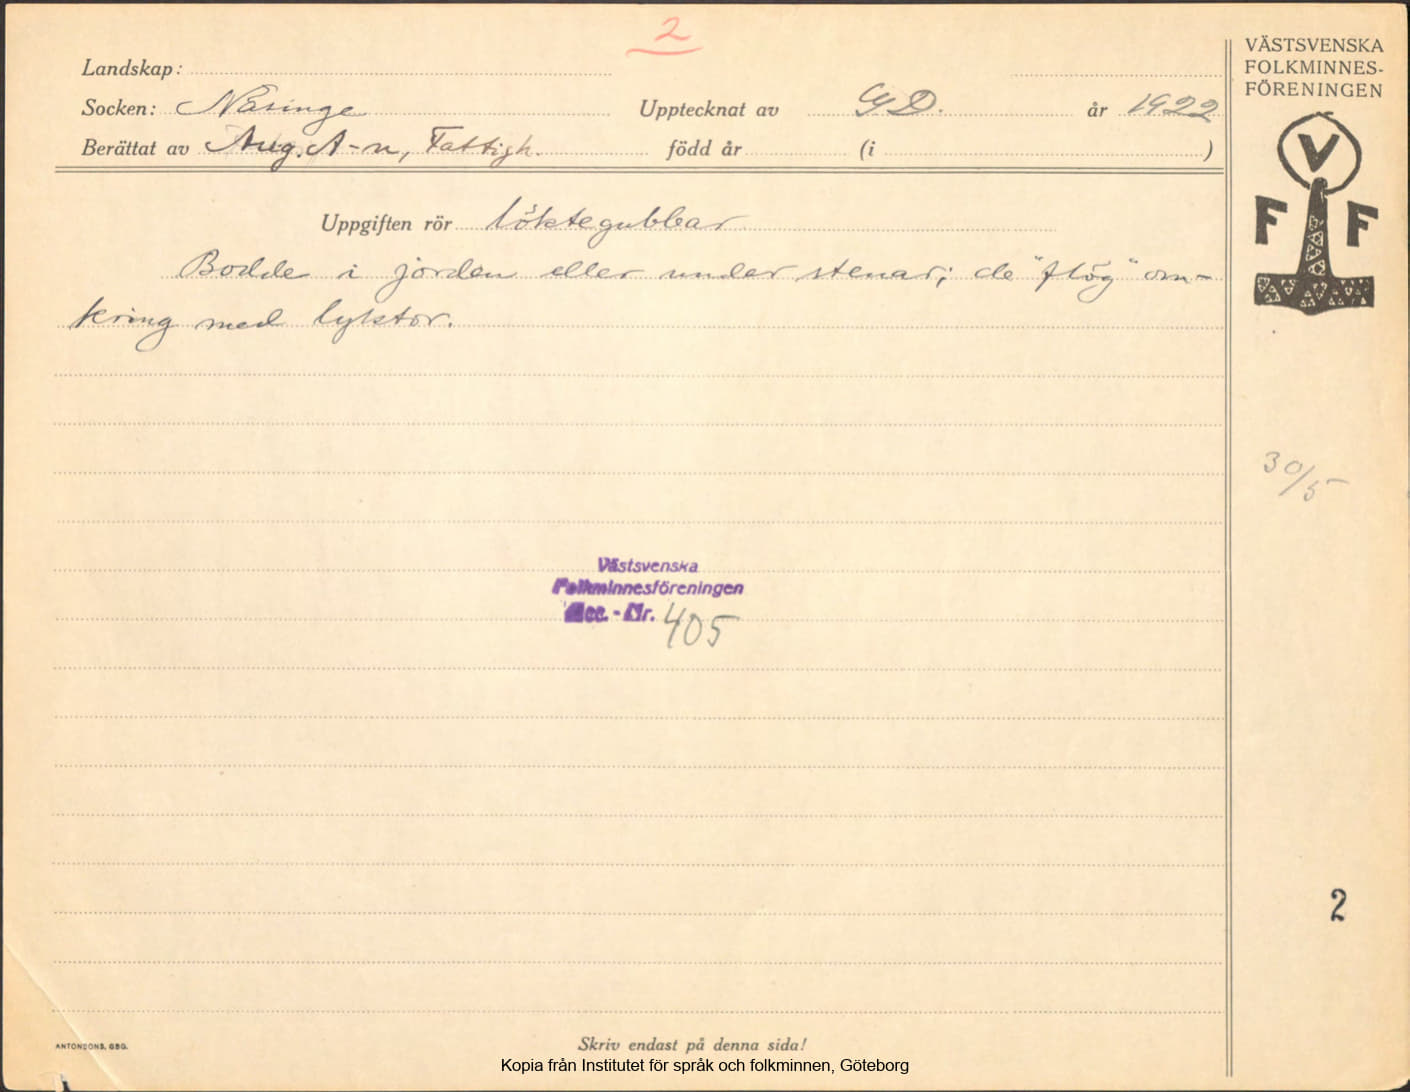 2
VÄSTSVENSKA
FOLKMINNES-
FÖRENINGEN
V
F F
Landskap:
Socken: Näsinge Upptecknat av G D. år 1922
Berättat av Aug. A-n, Fattigh. född år (i )
Uppgiften rör löktegubbar
Bodde i jorden eller under stenar; de "flög" om-
kring med lyktor.
30/5
Västsvenska
Folkminnesföreningen
Acc. - Nr. 405
2
ANTONSONS, GBG.
Skriv endast på denna sida!
Kopia från Institutet för språk och folkminnen, Göteborg